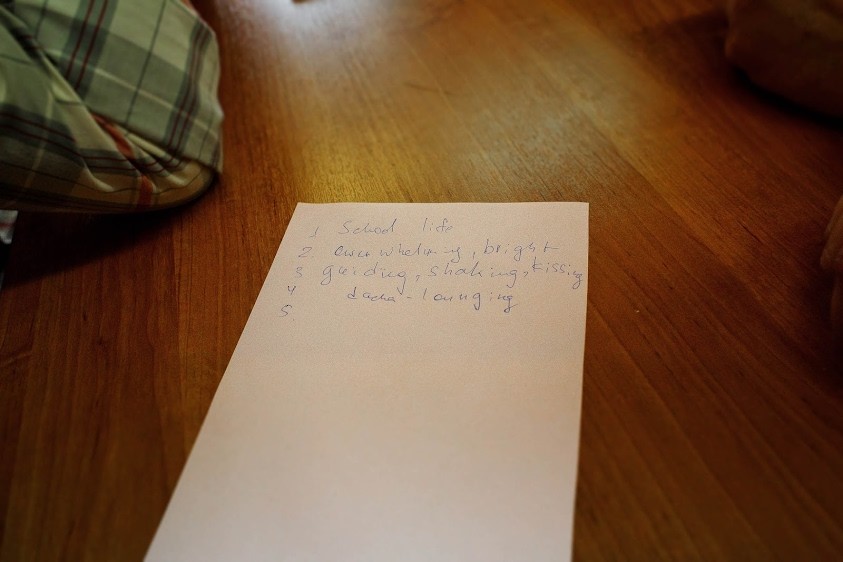 1 School life
2. overwhelming, bright
3 guiding, shaking, kissing
4 dacha-lounging
5.